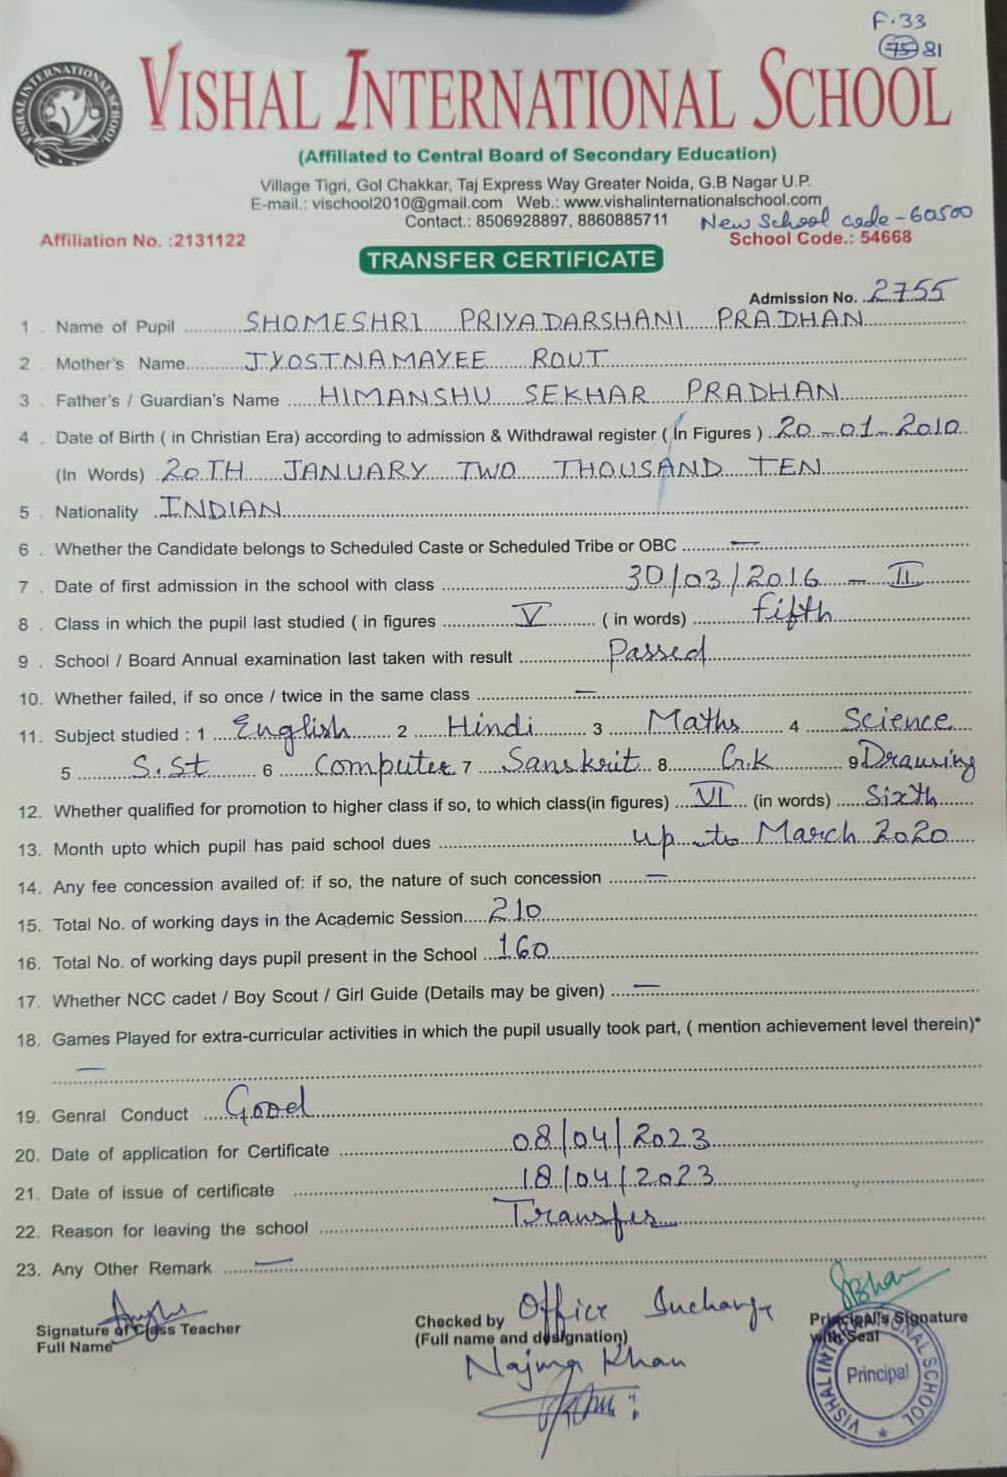 F.33
75 81
VISHAL INTERNATIONAL SCHOOL
VISHAL INTERNATIONAL SCHOOL
(Affiliated to Central Board of Secondary Education)
Village Tigri, Gol Chakkar, Taj Express Way Greater Noida, G.B Nagar U.P.
E-mail.: vischool2010@gmail.com Web.: www.vishalinternationalschool.com
Contact.: 8506928897, 8860885711 New School code - 60500
Affiliation No. :2131122 School Code.: 54668
TRANSFER CERTIFICATE
Admission No. 2755
1 . Name of Pupil SHOMESHRI PRIYADARSHANI PRADHAN
2 . Mother's Name JYOSTNAMAYEE ROUT
3 . Father's / Guardian's Name HIMANSHU SEKHAR PRADHAN
4 . Date of Birth ( in Christian Era) according to admission & Withdrawal register ( In Figures ) 20-01-2010
(In Words) 20TH JANUARY TWO THOUSAND TEN
5 . Nationality INDIAN
6 . Whether the Candidate belongs to Scheduled Caste or Scheduled Tribe or OBC —
7 . Date of first admission in the school with class 30/03/2016 - II
8 . Class in which the pupil last studied ( in figures V ( in words) fifth
9 . School / Board Annual examination last taken with result Passed
10. Whether failed, if so once / twice in the same class —
11. Subject studied : 1 English 2 Hindi 3 Maths 4 Science
5 S.St 6 Computer 7 Sanskrit 8. G.K 9 Drawing
12. Whether qualified for promotion to higher class if so, to which class(in figures) VI (in words) Sixth
13. Month upto which pupil has paid school dues up to March 2020
14. Any fee concession availed of: if so, the nature of such concession —
15. Total No. of working days in the Academic Session 210
16. Total No. of working days pupil present in the School 160
17. Whether NCC cadet / Boy Scout / Girl Guide (Details may be given) —
18. Games Played for extra-curricular activities in which the pupil usually took part, ( mention achievement level therein)*
—
19. Genral Conduct Good
20. Date of application for Certificate 08/04/2023
21. Date of issue of certificate 18/04/2023
22. Reason for leaving the school Transfer
23. Any Other Remark —
Signature of Class Teacher
Full Name
Checked by Office Incharge
(Full name and designation)
Najma Khan
Principal's Signature
with Seal
VISHAL INTERNATIONAL SCHOOL
Principal